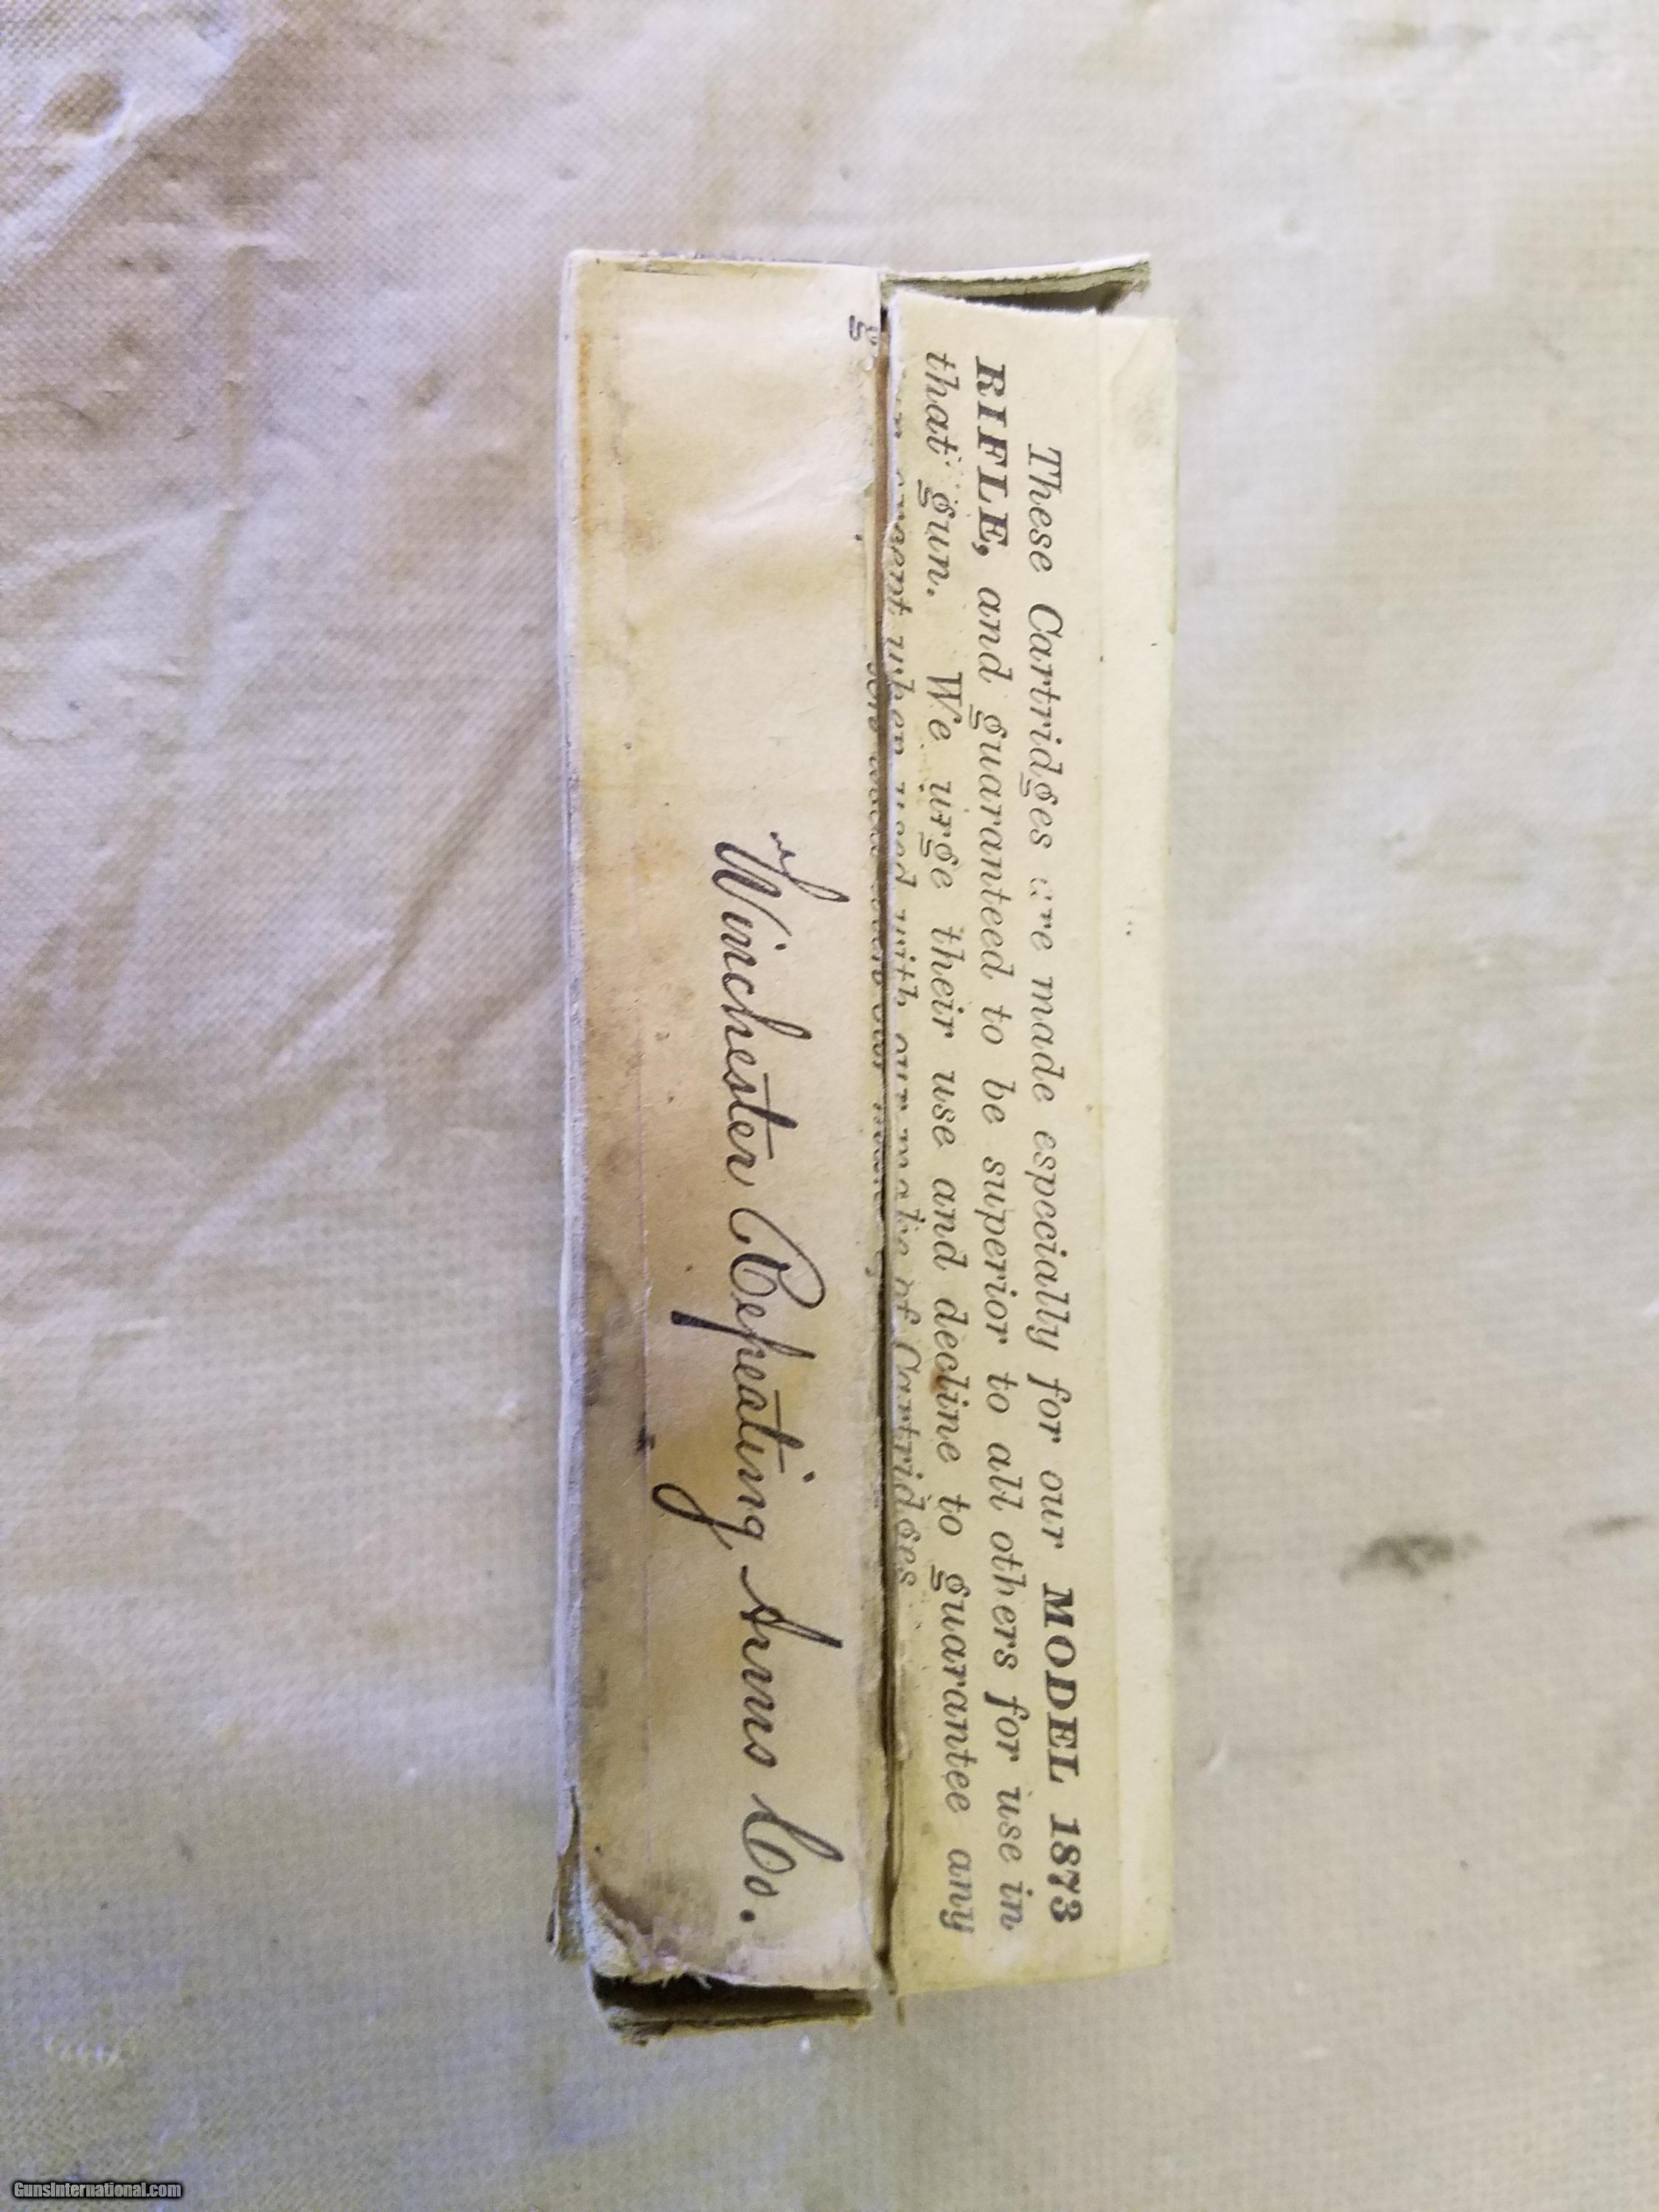 These Cartridges are made especially for our MODEL 1873
RIFLE, and guaranteed to be superior to all others for use in
that gun. We urge their use and decline to guarantee any
when used with our make of Cartridges
Winchester Repeating Arms Co.
GunsInternational.com